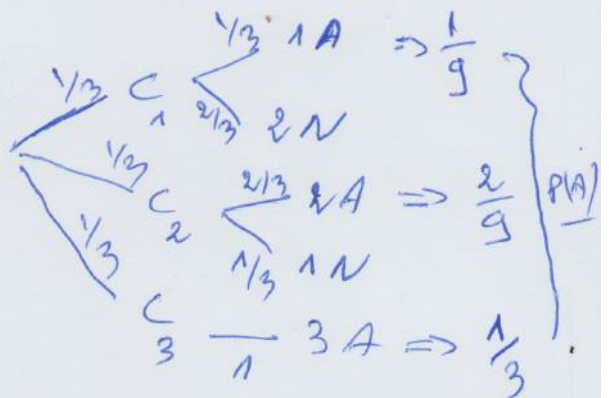 1/3 1 A => 1/9
1/3 C1 2/3 2 N
1/3 C2 2/3 2 A => 2/9 P(A)
1/3 1 N
1/3 C3 1 3 A => 1/3